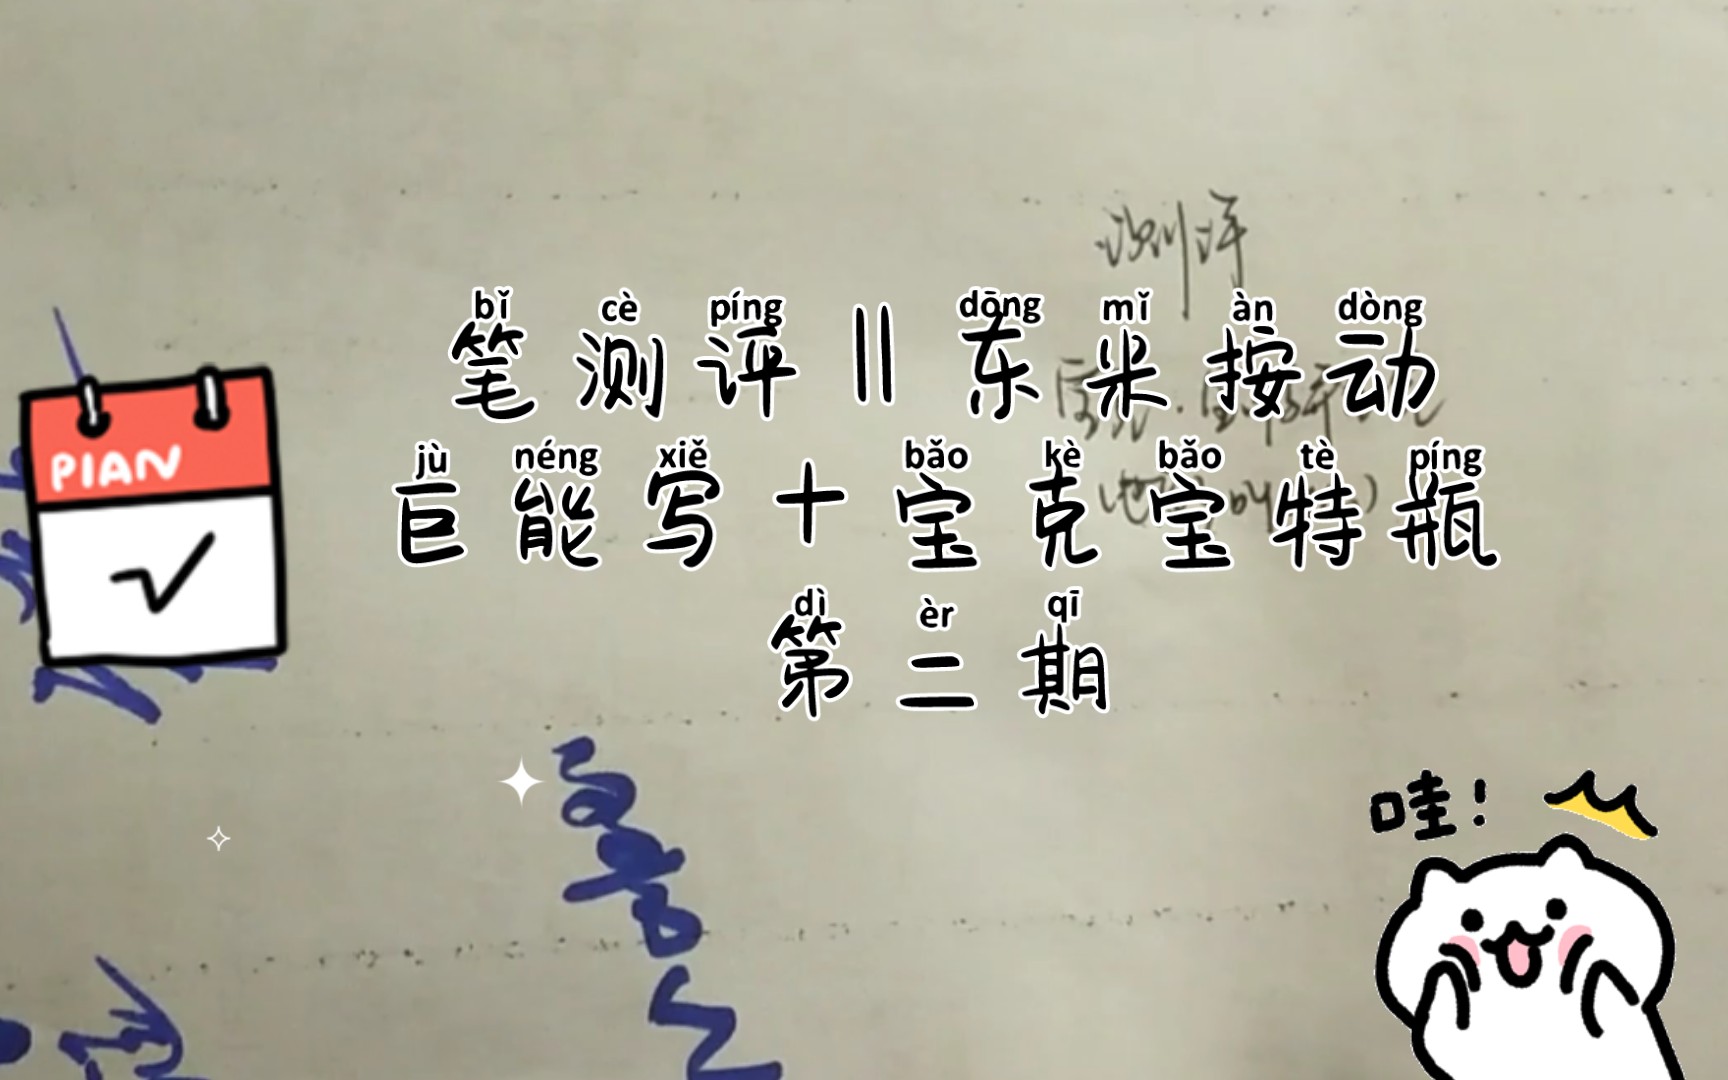 测评
bǐ cè píng dōng mǐ àn dòng
笔测评||东米按动
jù néng xiě bǎo kè bǎo tè píng
巨能写+宝克宝特瓶
dì èr qī
第二期
PIAN
哇!